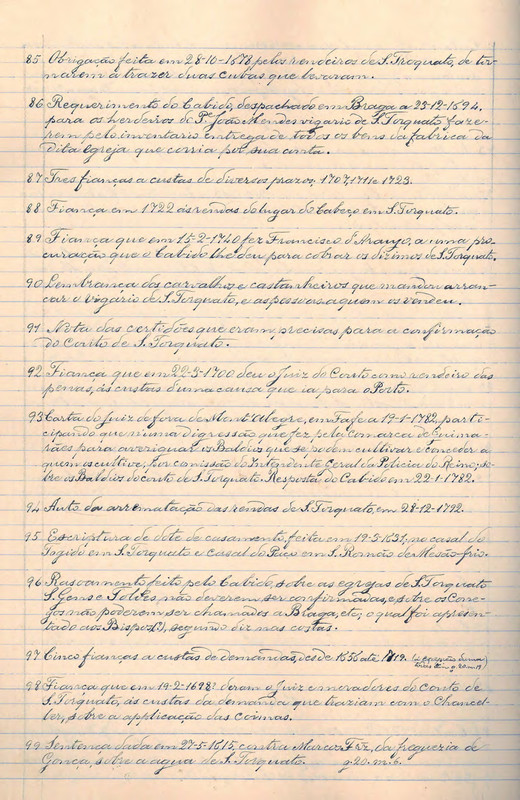 85 Obrigação feita em 28-10-1678 pelos rendeiros de S. Troquato, de tor-
narem a trazer duas cubas que levaram.
86 Requerimento do Cabido, despachado em Braga a 23-12-1694,
para os herdeiros de P.e João Mendes vigario de S. Torquato faze-
rem pelo inventario entrega de todos os bens da fabrica da
Dita Egreja que corria por sua conta.
87 Tres fianças a custas de diversos prazos, 1707, 1711 e 1723.
88 Fiança em 1722 ás rendas do lugar do Cabeço em S. Torquato.
89 Fiança que em 15-2-1740 fez Francisco d'Araujo, a uma pro-
curação que o Cabido lhe deu para cobrar os dizimos de S. Torquato.
90 Lembrança dos carvalhos e castanheiros que mandou arran-
car o vigario de S. Torquato, e as pessoas a quem os vendeu.
91 Nota das certidões que eram precisas para a confirmação
do Couto de S. Torquato.
92 Fiança que em 22-3-1700 deu o Juiz do Couto como rendeiro das
penas, ás custas d'uma causa que ia para o Porto.
93 Carta do Juiz de fora de Mont'Alegre, em Fafe a 19-1-1782, parte-
cipando que n'uma digressão que fez pela Comarca de Guima-
rães para averiguar os Baldios que se podem cultivar e conceder a
quem os cultive, por comissão do Intendente Geral da Policia do Reino, so-
bre os Baldios do couto de S. Torquato. Resposta do Cabido em 22-1-1782.
94 Auto da arrematação das rendas de S. Torquato, em 28-12-1792.
95 Escriptura de dote de casamento, feita em 19-5-1631, no casal do
em S. Torquato e casal do Paço em S. Romão de Mesão-frio.
96 Rasoamento feito pelo Cabido, sobre as egrejas de S. Torquato
S. Gens e não deverem ser confirmadas, e sobre os Cone-
gos não poderem ser chamados a Braga, etc; o qual foi apresen-
tado aos Bispos(?), segundo diz nas costas.
97 Cinco fianças a custas de demandas, desde 1656 até 1719.
98 Fiança que em 19-2-1698? deram o Juiz e moradores do couto de
S. Torquato, ás custas da demanda que traziam com o Chancel-
ler, sobre a applicação das coimas.
99 Sentença dada em 27-5-1615, contra Marcos Frz, da freguezia de
Gonça, sobre a agua de S. Torquato. g. 20. m. 6.